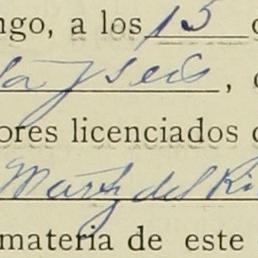 ngo, a los 15
ta y seis,
ores licenciados
Martz del Ri
materia de este